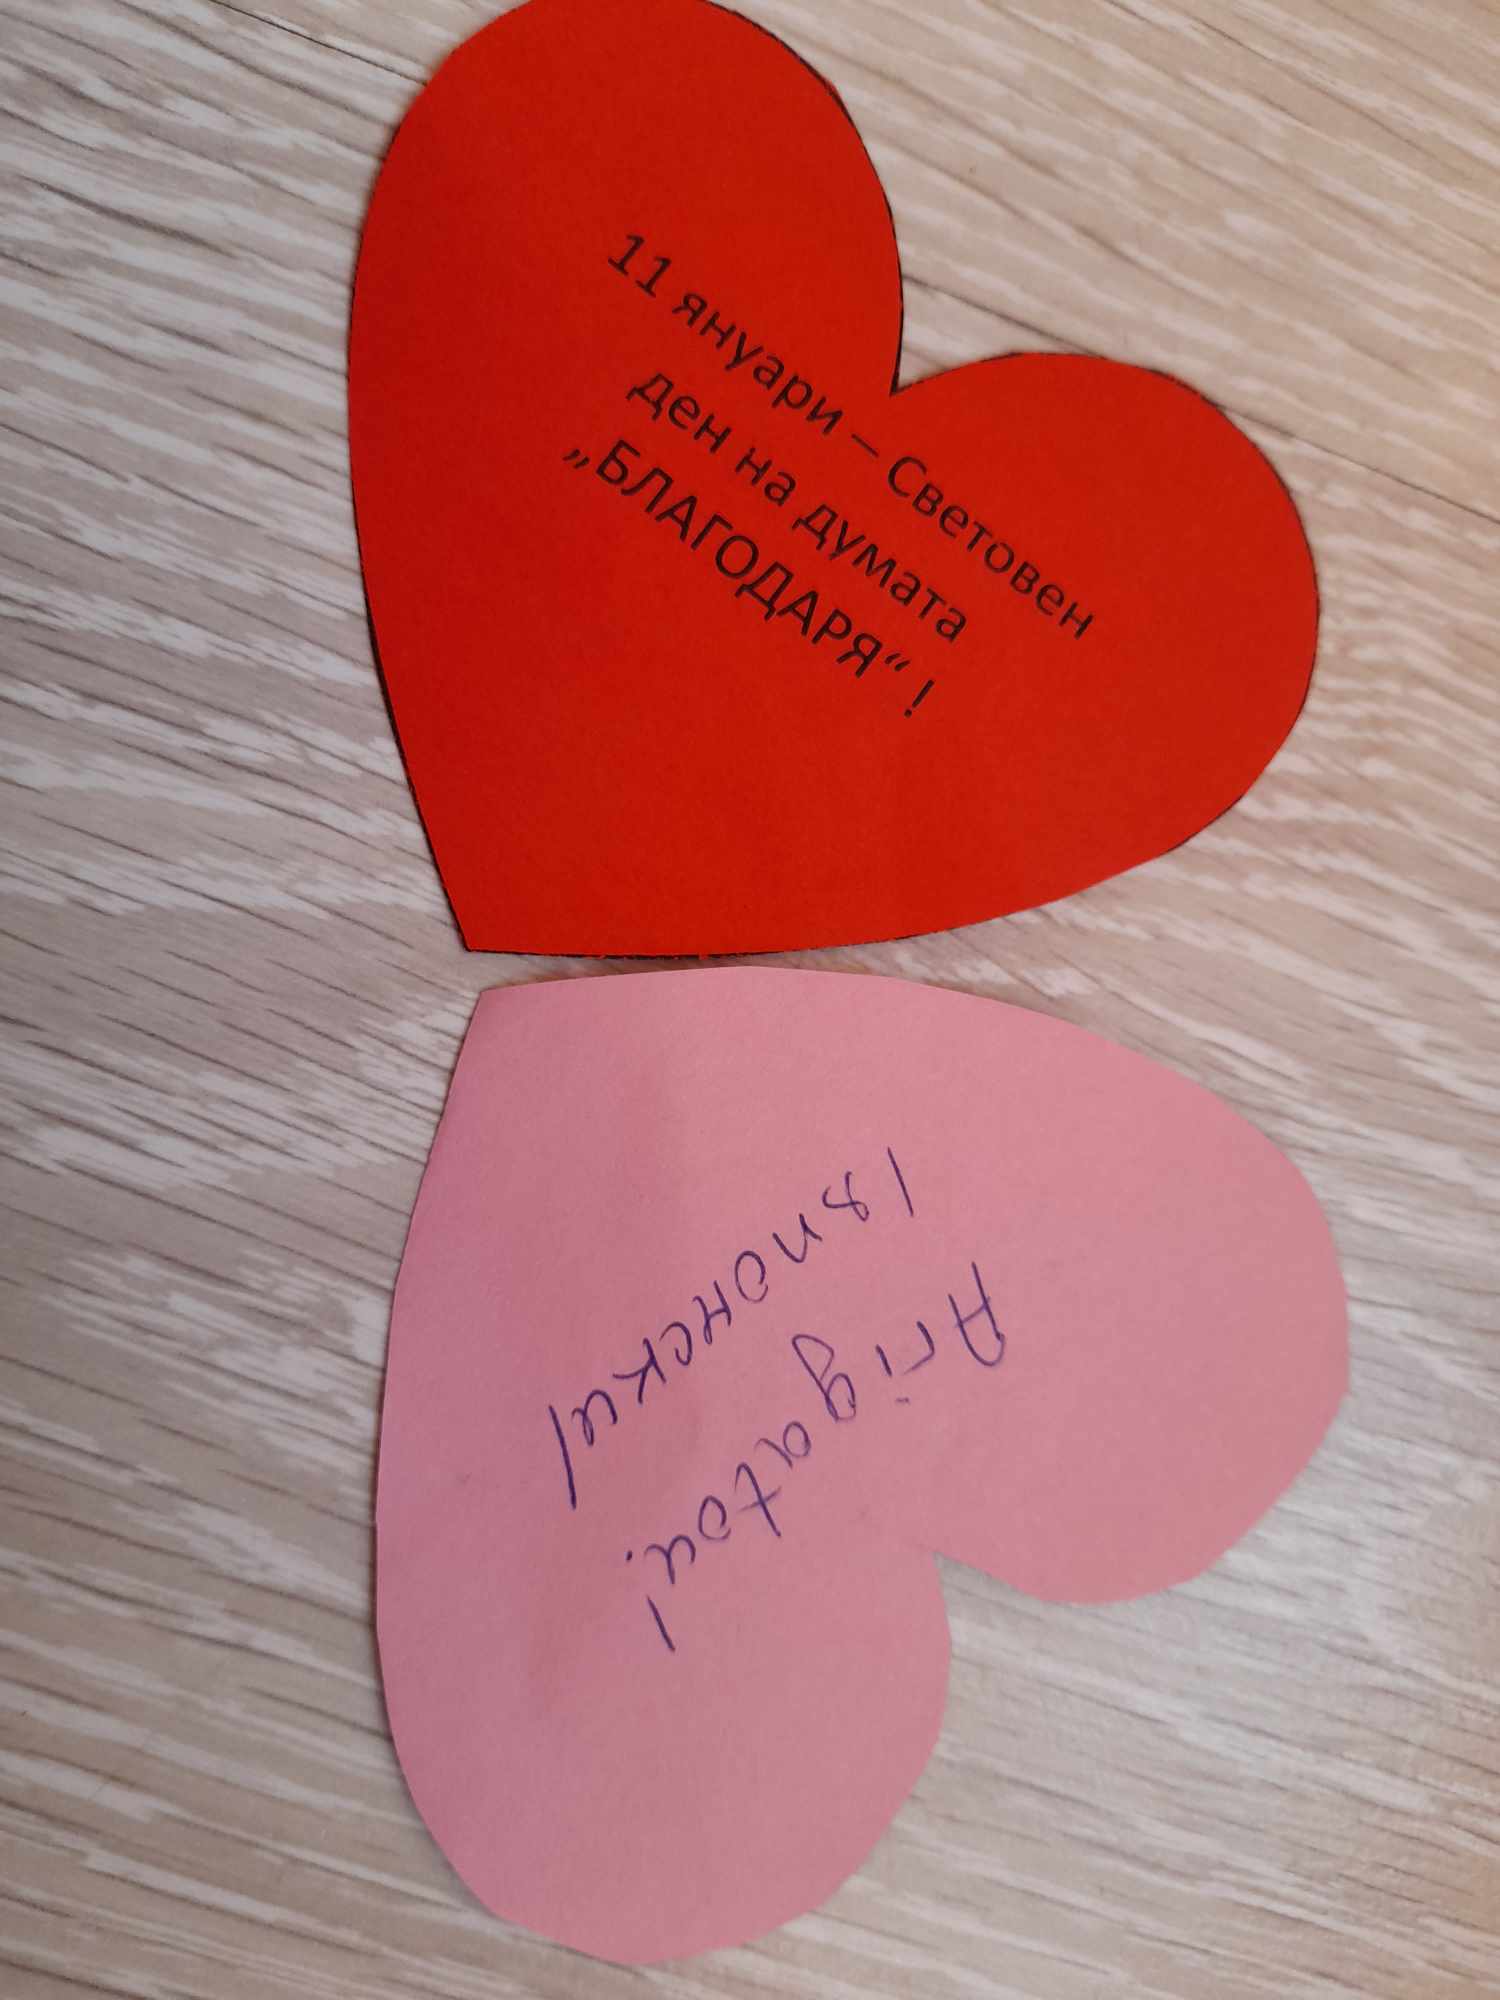 11 януари – Световен
ден на думата
„БЛАГОДАРЯ“ !
Arigatou!
/японски/